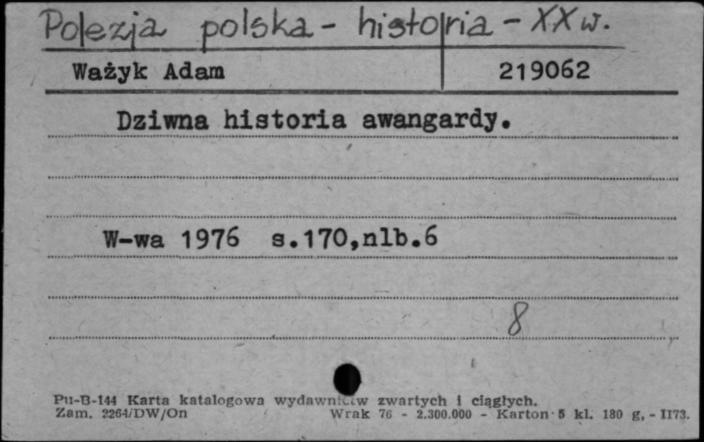 Poezja polska - historia - XX w.
Ważyk Adam 219062
Dziwna historia awangardy.
W-wa 1976 s.170,nlb.6
8
Pu-B-144 Karta katalogowa wydawnictw zwartych i ciągłych.
Zam. 2264/DW/On Wrak 76 - 2.300.000 - Karton 5 kl. 180 g, - II73.